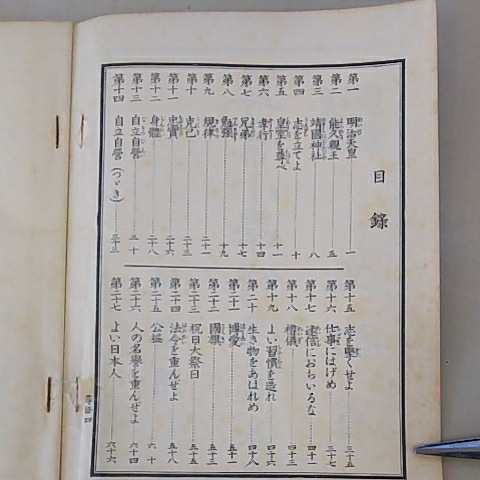 目錄
第一 明治天皇 一
第二 能久親王 五
第三 靖國神社 八
第四 志を立てよ 十
第五 皇室を尊べ 十一
第六 孝行 十四
第七 兄弟 十七
第八 勉強 十九
第九 規律 二十一
第十 克己 二十三
第十一 忠實 二十六
第十二 身體 二十八
第十三 自立自營 三十
第十四 自立自營(つゞき) 三十三
第十五 志を堅くせよ 三十五
第十六 仕事にはげめ 三十七
第十七 迷信におちいるな 四十一
第十八 禮儀 四十三
第十九 よい習慣を造れ 四十四
第二十 生き物をあはれめ 四十八
第二十一 博愛 五十一
第二十二 國旗 五十三
第二十三 祝日大祭日 五十五
第二十四 法令を重んぜよ 五十八
第二十五 公益 六十
第二十六 人の名譽を重んぜよ 六十四
第二十七 よい日本人 六十六